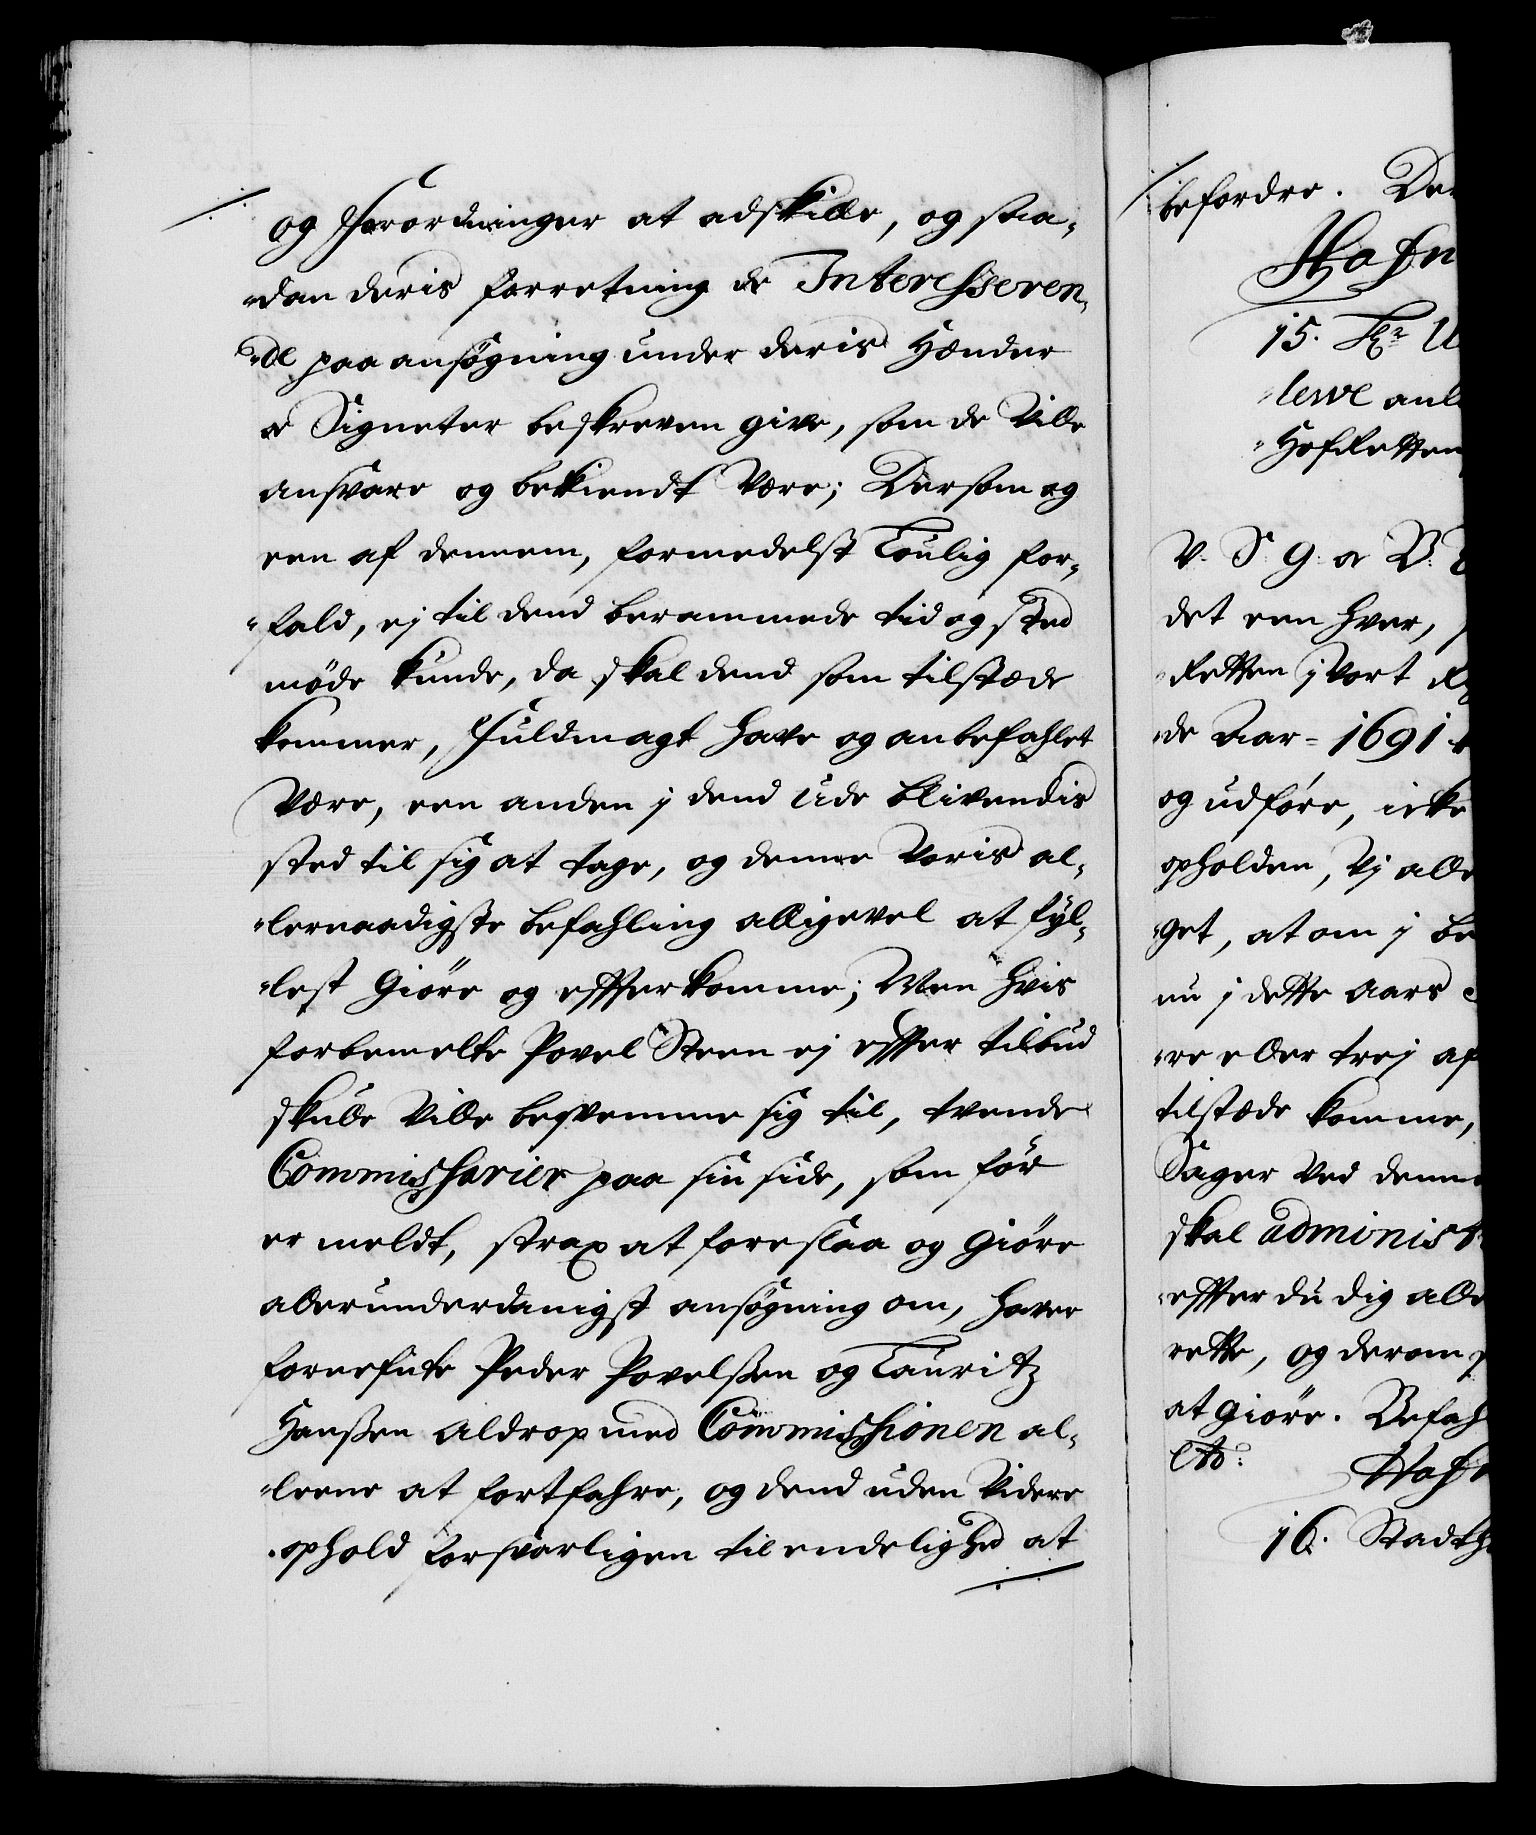 og Forordninger at adskille, og saa-
dan deris forretning de Interesseren-
de paa ansøgning under deris Hænder
& Signeter beskreven give, som de Ville
ansvare og bekiendt Være; Dersom og
een af dennem, formedelst Loulig for-
fald, ej til dend berammede tid og sted
møde kunde, da skal dend som tilstæde
kommer, Fuldmagt have og anbefahlet
Være, een anden j dend Ude blivendis
sted til sig at tage, og denne Voris al-
lernaadigste befahling alligevel at fyl-
lest Giöre og effterkomme; Men hvis
forbemelte Povel Steen ej effter tilbud
skulle Ville beqvemme sig til, tvende
Commissarier paa sin side, som för
er meldt, strax at foreslaa og Giöre
allerunderdanigst ansøgning om, haver
fornefnte Peder Povelßen og Lauritz
Hanßen Aldrop med Commissionen al-
leene at fortfahre, og dend uden Videre
ophold forsvarligen til endelighed at
befordre. Der
Hafn
15. Hr U
lewe anl
HofRetten
V. S. G. & B.
det een hver,
Retten j Vort
de Aar = 1691
og udföre, icke
opholden, Vj alle
get, at om j be
nu j dette Aars
re eller trej af
tilstæde komme,
Sager Ved denn
skal administ
effter du dig alle
rette, og derom
at Giöre. Befah
etc.
Hafn
16. Stadth